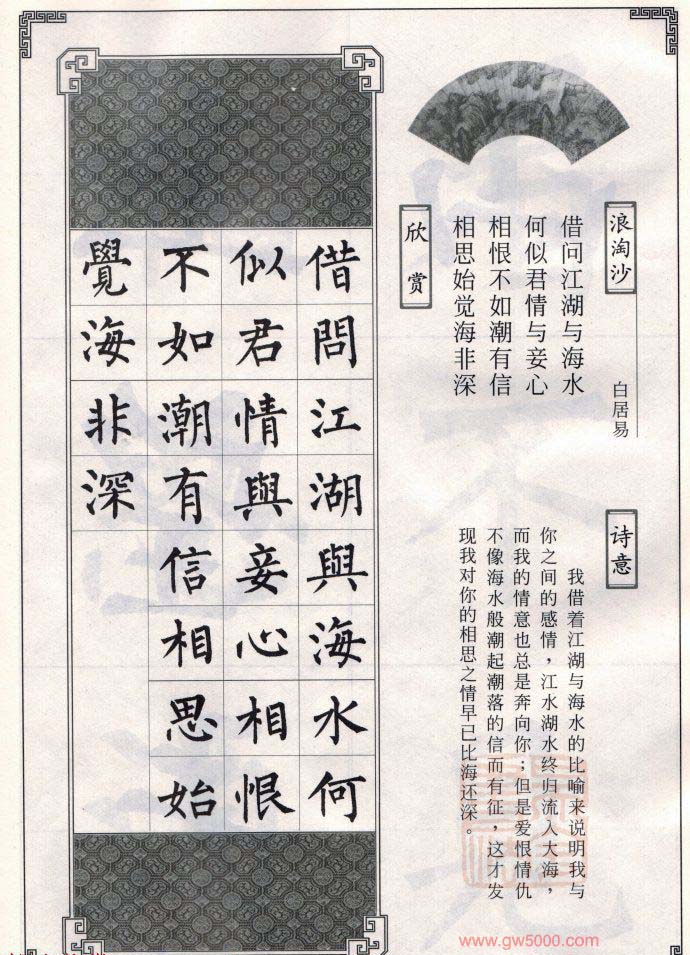 浪淘沙
白居易
借问江湖与海水
何似君情与妾心
相恨不如潮有信
相思始觉海非深
欣赏
诗意
我借着江湖与海水的比喻来说明我与
你之间的感情，江水湖水终归流入大海，
而我的情意也总是奔向你；但是爱恨情仇
不像海水般潮起潮落的信而有征，这才发
现我对你的相思之情早已比海还深。
借問江湖與海水何
似君情與妾心相恨
不如潮有信相思始
覺海非深
www.gw5000.com